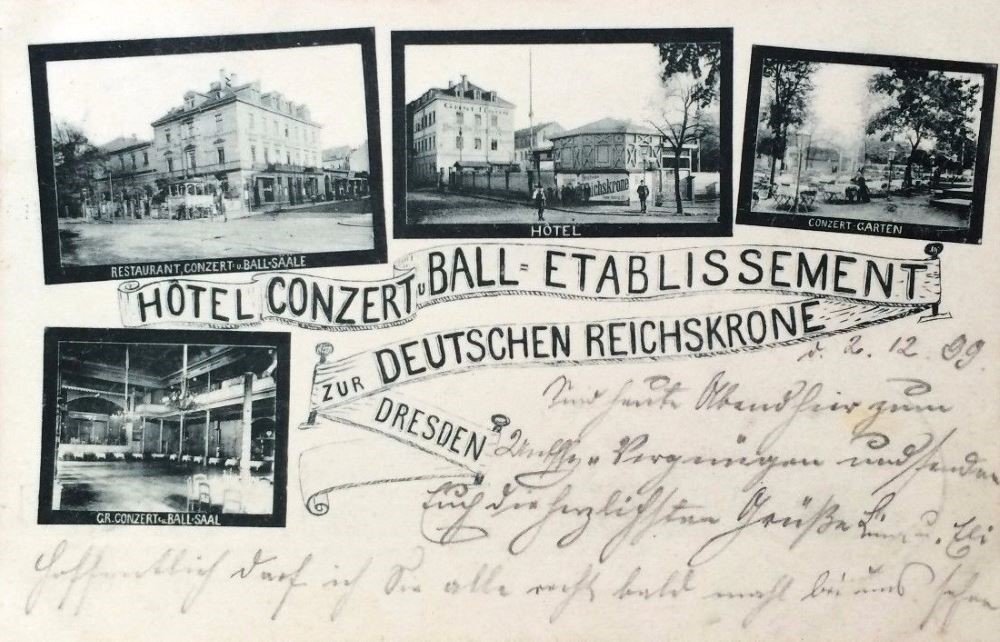 RESTAURANT, CONZERT- u. BALL-SÄÄLE
Grosse
Reichskrone
HÔTEL
CONZERT-GARTEN
HÔTEL CONZERT u BALL=ETABLISSEMENT
ZUR DEUTSCHEN REICHSKRONE
DRESDEN
GR. CONZERT- u. BALL-SAAL
d. 2. 12. 99.
Sind heute Abend hier zum
Vergnügen und senden
Euch die herzlichsten Grüße u.
Hoffentlich darf ich Sie alle recht bald mahl bei uns sehen